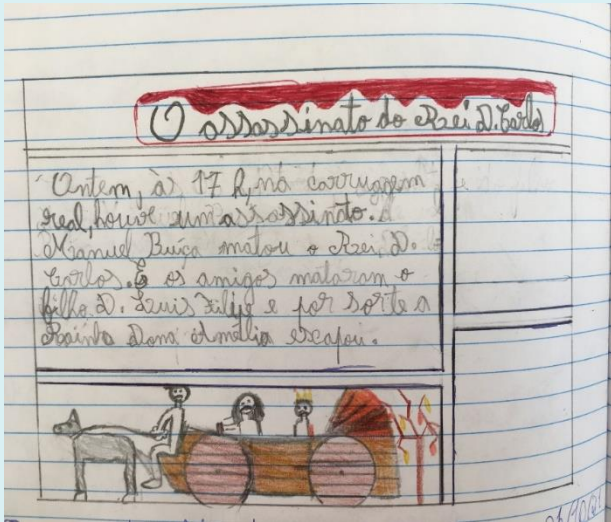 O assassinato do Rei D. Carlos
Ontem, às 17 h, na carruagem
real, houve um assassinato.
Manuel Buíça matou o Rei D.
Carlos. E os amigos mataram o
filho D. Luis Filipe e por sorte a
Rainha Dona Amélia escapou.